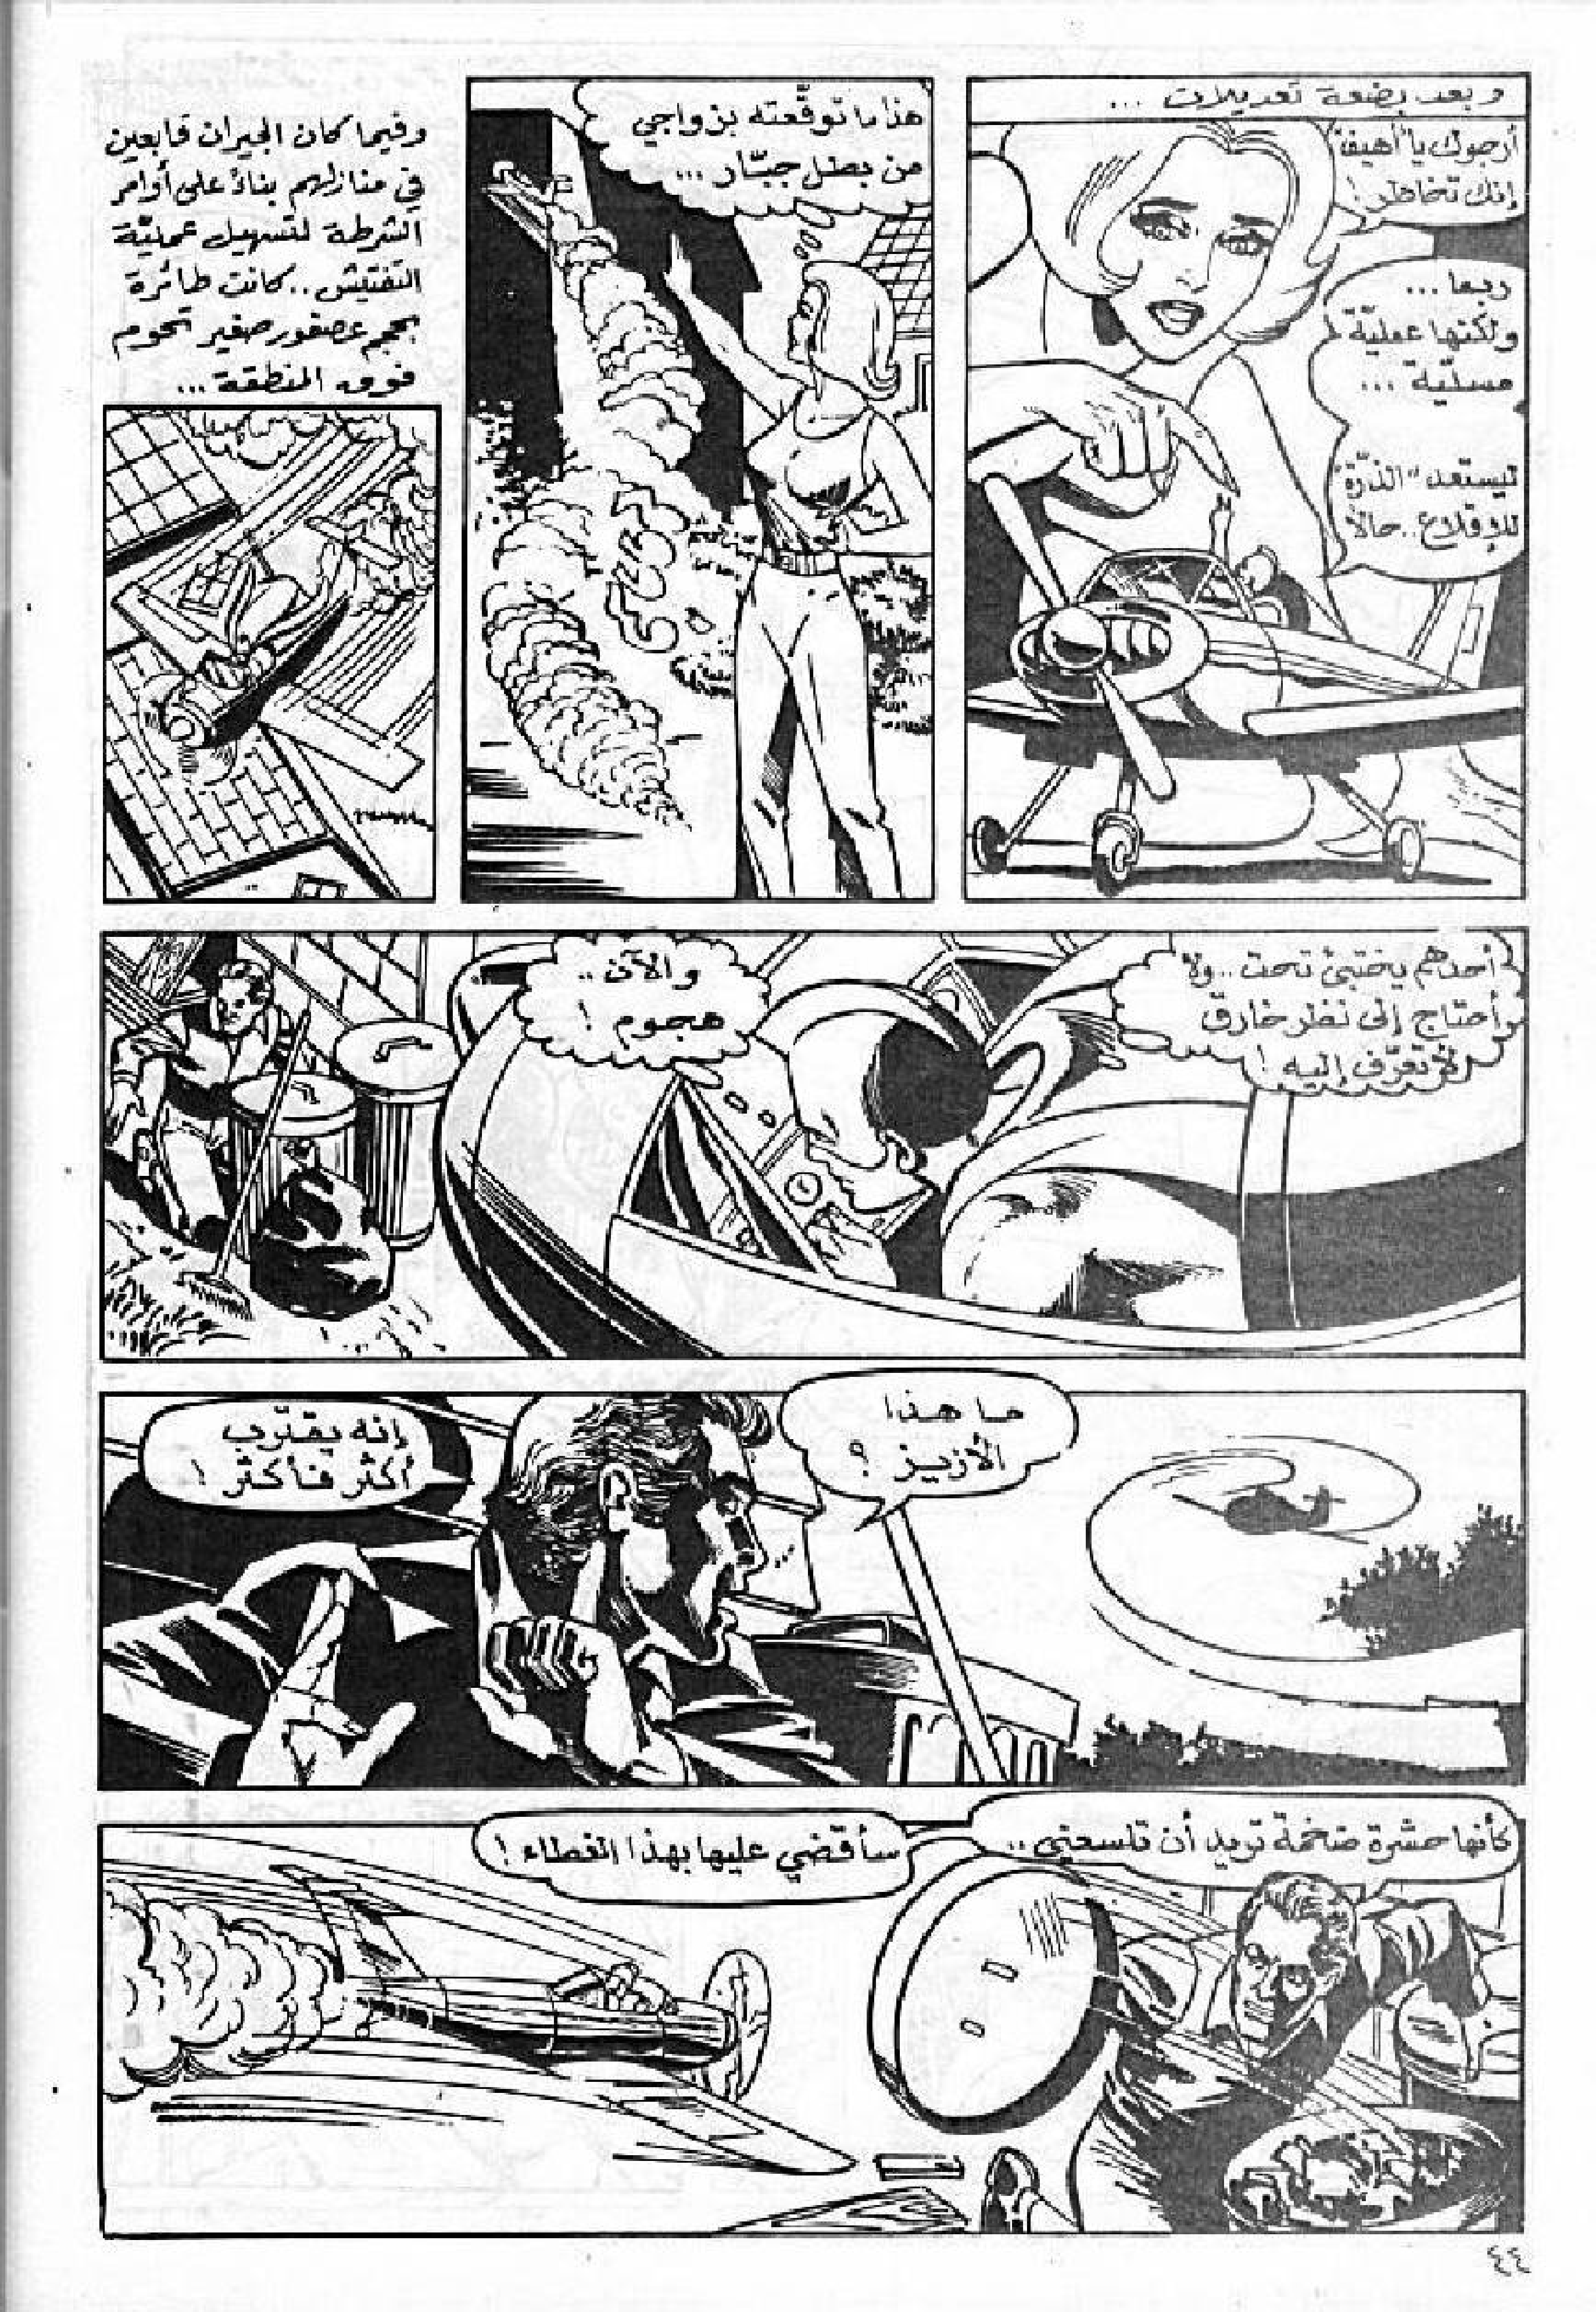 وبعد بضعة تعديلات ...
أرجوك يا "أهيف"
إنك تخاطر!
ربما ...
ولكنها عملية
مسلّية ...
ليستعد "الذرّة"
للإقلاع .. حالاً
هذا ما توقّعته بزواجي
من بطل جبّار ...
وفيما كان الجيران قابعين
في منازلهم بناءً على أوامر
الشرطة لتسهيل عمليّة
التفتيش .. كانت طائرة
بحجم عصفور صغير تحوم
فوق المنطقة ...
أحدهم يختبئ تحت .. ولا
أحتاج إلى نظر خارق
لأتعرّف إليه!
والآن ..
هجوم!
ما هذا
الأزيز؟
إنه يقترب
أكثر فأكثر!
كأنها حشرة ضخمة تريد أن تلسعني ..
سأقضي عليها بهذا الغطاء!
٤٤